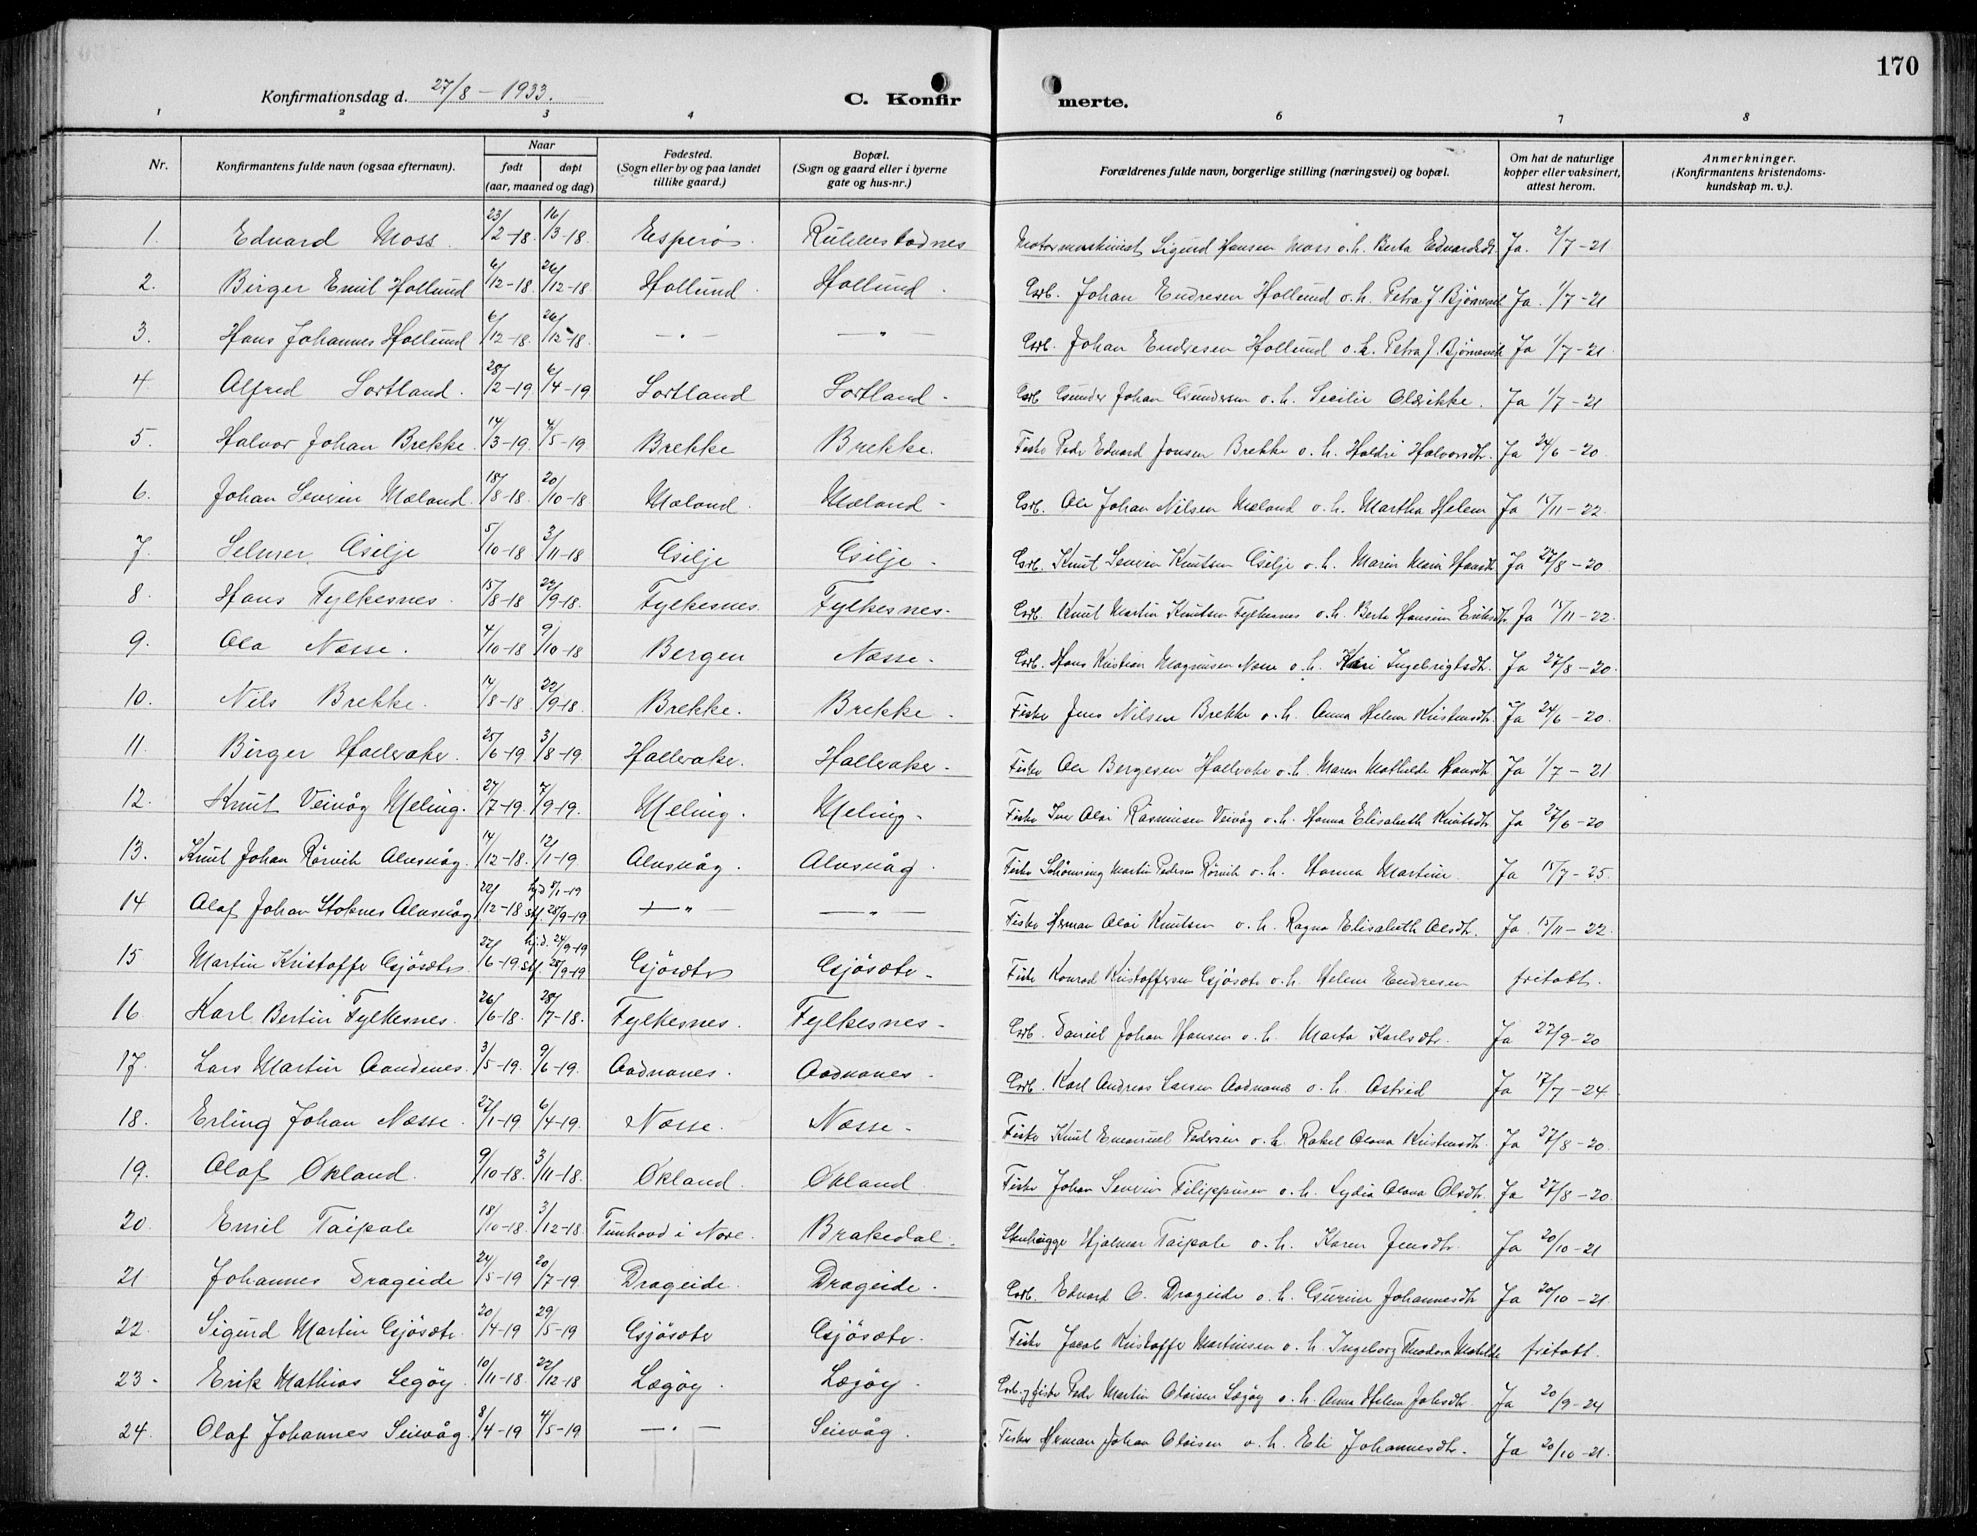 170
Konfirmationsdag d. 27/8 - 1933.
C. Konfirmerte.
1 2 3 4 6 7 8
Nr. | Konfirmantens fulde navn (ogsaa efternavn). | Naar født døpt (aar, maaned og dag) | Fødested. (Sogn eller by og paa landet tillike gaard.) | Bopæl. (Sogn og gaard eller i byerne gate og hus-nr.) | Forældrenes fulde navn, borgerlige stilling (næringsvei) og bopæl. | Om hat de naturlige kopper eller vaksinert, attest herom. | Anmerkninger. (Konfirmantens kristendomskundskap m. v.).
1. Edvard Moss. 23/2-18. 16/3-18. Esperø. Motormaskinist Sigurd Hansen Moss o.h. Berta Edvardsdt. Ja. 2/7-21
2. Birger Emil Hollund 6/12-18. 26/12-18. Hollund. Hollund. Grb. Johan Endresen Hollund o.h. Petra J. Bjørnevik Ja. 1/7-21
3. Hans Johannes Hollund 6/12-18. 26/12-18. —"— —"— Grb. Johan Endresen Hollund o.h. Petra J. Bjørnevik Ja 1/7-21
4 Alfred Sortland. 28/2-19 6/4-19 Sortland Sortland. Grb Gunder Johan Gundersen o.h. Secilie Olsrikke. Ja 1/7-21
5. Halvor Johan Brekke. 14/3-19. 4/5-19 Brekke Brekke. Fisker Peder Edvard Jonsen Brekke o.h. Haldri Halvorsdtr. Ja 24/6-20
6. Johan Severin Mæland. 18/8-18. 20/10-18. Mæland. Mæland. Grb. Ole Johan Nilsen Mæland o.h. Martha Helene Ja 15/11-22
7. Selmer Gilje 5/10-18 3/11-18 Gilje Gilje. Grb. Knut Severin Knutsen Gilje o.h. Maren Marie Hansdtr. Ja 27/8-20
8. Hans Fylkesnes. 15/8-18 22/9-18. Fylkesnes. Fylkesnes. Grb. Knut Martin Knutsen Fylkesnes o.h. Berta Hansine Eriksdtr. Ja 15/11-22.
9. Ola Næsse. 4/10-18 9/10-18 Bergen Næsse. Grb. Hans Kristian Magnusen Næsse o.h. Kari Ingebrigtsdtr. Ja 27/8-20.
10. Nils Brekke. 17/8-18 22/9-18. Brekke. Brekke. Fisker Jens Nilsen Brekke o.h. Anna Helene Kristensdtr. Ja 24/6-20.
11. Birger Halleraker. 25/6-19 3/8-19. Halleraker. Halleraker. Fisker Ole Bergesen Halleraker o.h. Maren Mathilde Hansdtr. Ja 1/7-21
12. Knut Veivåg Meling. 27/7-19. 7/9-19. Meling. Meling. Fisker Iver Olai Rasmussen Veivåg o.h. Hanna Elisabeth Knutsdtr. Ja 27/6-20
13. Knut Johan Rørvik Alvsvåg. 14/12-18. 12/1-19. Alvsvåg. Alvsvåg Fisker Schönning Martin Pedersen Rørvik o.h. Hanna Martine. Ja 15/7-25.
14 Olaf Johan Stoknes Alvsvåg 22/12-18 hjd 5/1-19 stf. 28/9-19 —"— —"— Fisker Herman Olai Knutsen o.h. Ragna Elisabeth Olsdtr. Ja 15/11-22.
15 Martin Kristoffer Gjøsæter 27/6-19. hjd. 24/9-19 stf 28/9-19 Gjøsæter Gjøsæter. Fisker Konrad Kristoffersen Gjøsæter o.h. Helene Endresen fritatt.
16. Karl Bertin Fylkesnes. 26/6-18. 28/7-18. Fylkesnes. Fylkesnes. Grb. Daniel Johan Hansen o.h. Marta Karlsdtr. Ja 27/9-20
17. Lars Martin Aandenes. 3/5-19. 9/6-19. Aadnanes. Aadnanes. Grb. Karl Andreas Larsen Aadnanes o.h. Astrid Ja 17/7-24
18. Erling Johan Næsse. 27/1-19 6/4-19. Næsse. Næsse. Fisker Knut Emanuel Pedersen o.h. Rakel Olava Kristensdtr. Ja 27/8-20
19. Olaf Økland. 9/10-18. 3/11-18. Økland. Økland. Fisker Johan Severin Filippusen o.h. Lydia Olava Olsdtr. Ja 27/8-20.
20. Emil Taipale 18/10-18. 3/12-18. Tunhovd i Nore. Brakedal. Stenhugger Hjalmar Taipale o.h. Karen Jensdtr. Ja 20/10-21
21 Johannes Drageide 24/5-19 20/7-19 Drageide. Drageide. Grb. Edvard O. Drageide o.h. Gurine Johannesdtr Ja 20/10-21.
22. Sigurd Martin Gjøsæter. 20/4-19 29/5-19 Gjøsæter Gjøsæter. Fisker Jacob Kristoffer Martinsen o.h. Ingeborg Theodora Matilde fritatt.
23. Erik Mathias Legøy. 10/11-18. 22/12-18 Lægøy. Lægøy. Grb. og fisker Peder Martin Olaisen Lægøy o.h. Anna Helene Johsdtr. Ja 20/9-24
24. Olaf Johannes Seievåg. 8/4-19 4/5-19 —"— Seievåg. Fisker Herman Johan Olaisen o.h. Eli Johannesdtr. Ja 20/10-21.